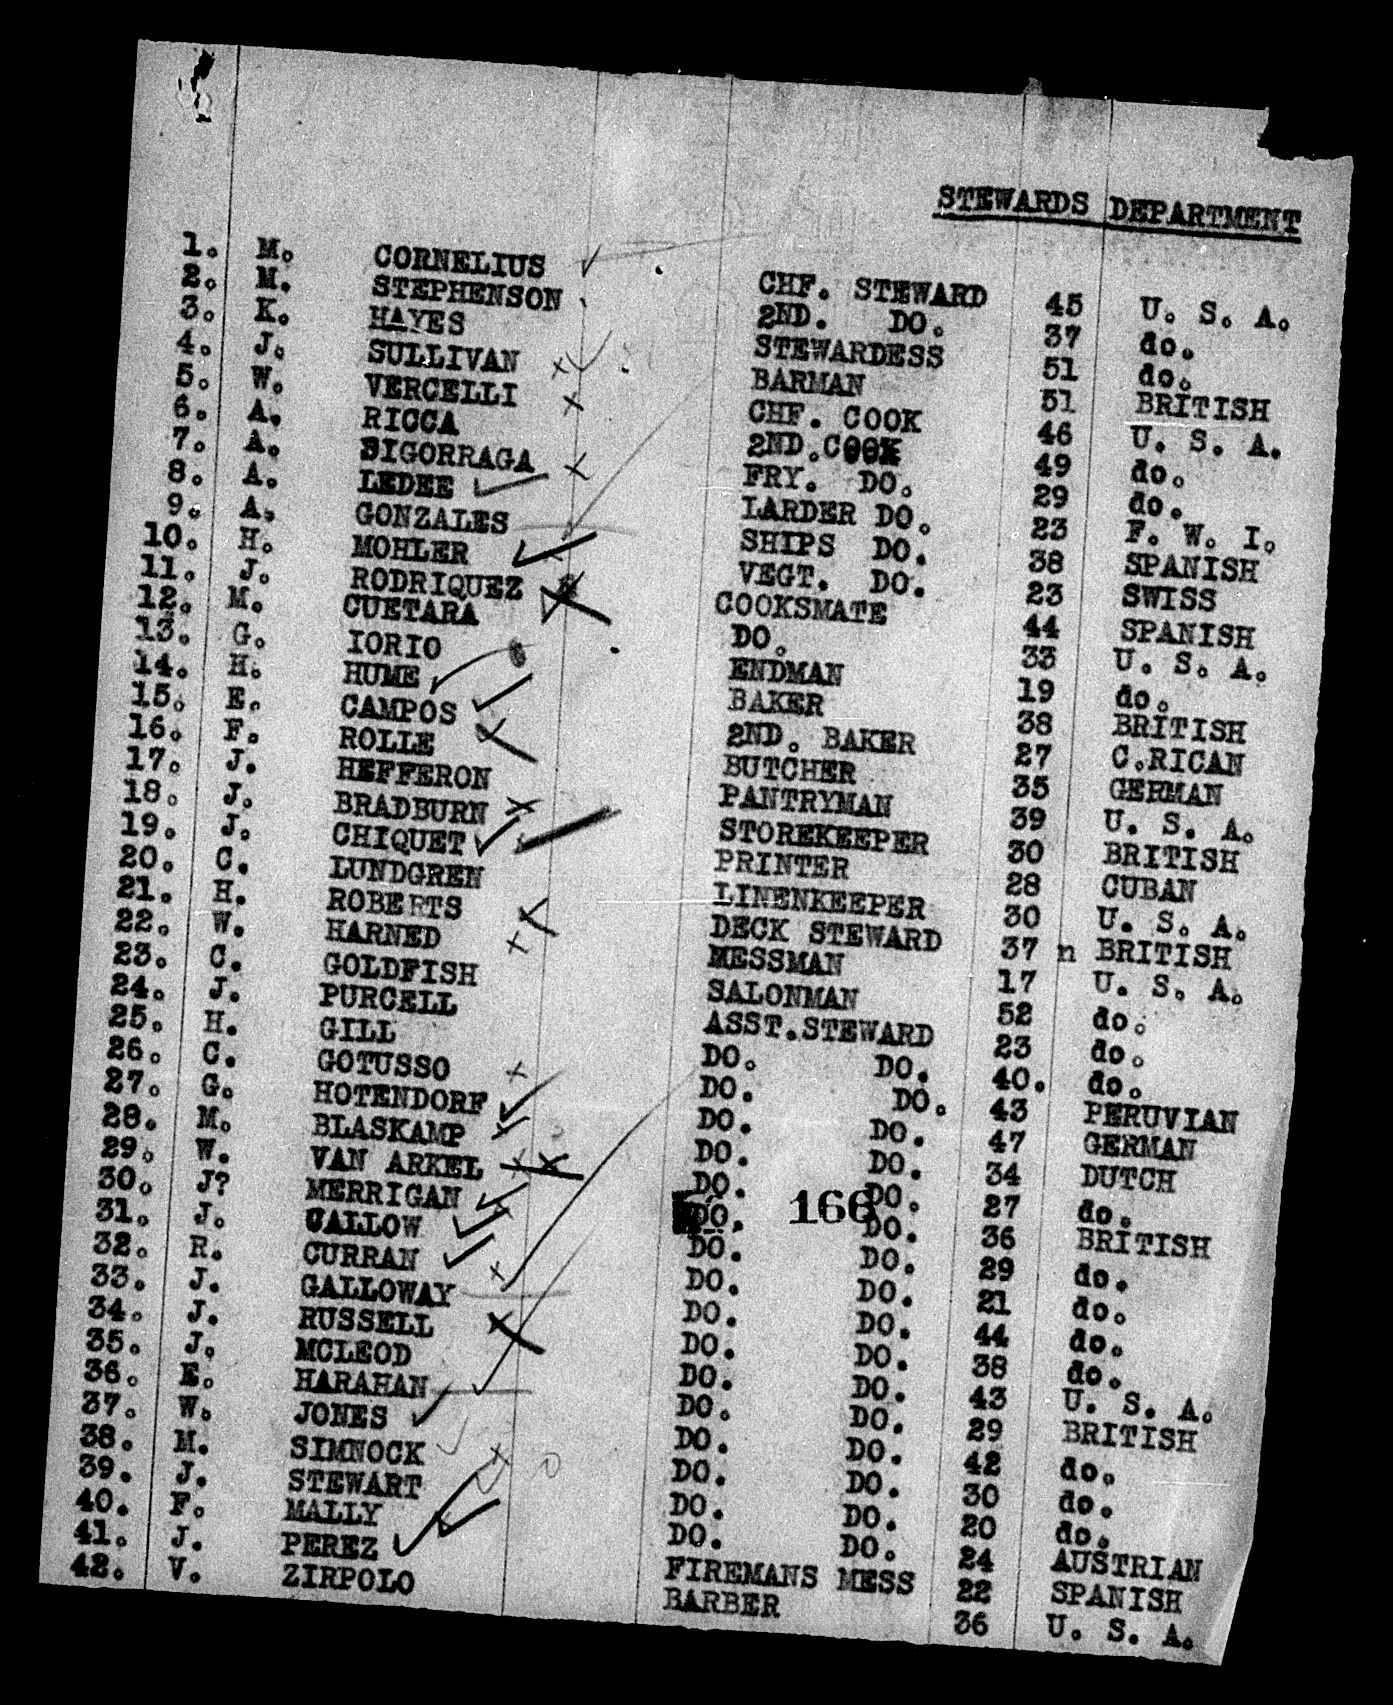 STEWARDS DEPARTMENT
1. M. CORNELIUS CHF. STEWARD 45 U. S. A.
2. M. STEPHENSON 2ND. DO. 37 do.
3. K. HAYES STEWARDESS 51 do.
4. J. SULLIVAN BARMAN 51 BRITISH
5. W. VERCELLI CHF. COOK 46 U. S. A.
6. A. RICCA 2ND.COOK 49 do.
7. A. SIGORRAGA FRY. DO. 29 do.
8. A. LEDEE LARDER DO. 23 F. W. I.
9. A. GONZALES SHIPS DO. 38 SPANISH
10. H. MOHLER VEGT. DO. 23 SWISS
11. J. RODRIQUEZ COOKSMATE 44 SPANISH
12. M. CUETARA DO. 33 U. S. A.
13. G. IORIO ENDMAN 19 do.
14. H. HUME BAKER 38 BRITISH
15. E. CAMPOS 2ND. BAKER 27 C.RICAN
16. F. ROLLE BUTCHER 35 GERMAN
17. J. HEFFERON PANTRYMAN 39 U. S. A.
18. J. BRADBURN STOREKEEPER 30 BRITISH
19. J. CHIQUET PRINTER 28 CUBAN
20. C. LUNDGREN LINENKEEPER 30 U. S. A.
21. H. ROBERTS DECK STEWARD 37 n BRITISH
22. W. HARNED MESSMAN 17 U. S. A.
23. C. GOLDFISH SALONMAN 52 do.
24. J. PURCELL ASST.STEWARD 23 do.
25. H. GILL DO. DO. 40. do.
26. C. GOTUSSO DO. DO. 43 PERUVIAN
27. G. HOTENDORF DO. DO. 47 GERMAN
28. M. BLASKAMP DO. DO. 34 DUTCH
29. W. VAN ARKEL DO. DO. 27 do.
30. J? MERRIGAN DO. DO. 36 BRITISH
31. J. CALLOW DO. DO. 29 do.
32. R. CURRAN DO. DO. 21 do.
33. J. GALLOWAY DO. DO. 44 do.
34. J. RUSSELL DO. DO. 38 do.
35. J. MCLEOD DO. DO. 43 U. S. A.
36. E. HARAHAN DO. DO. 29 BRITISH
37. W. JONES DO. DO. 42 do.
38. M. SIMNOCK DO. DO. 30 do.
39. J. STEWART DO. DO. 20 do.
40. F. MALLY DO. DO. 24 AUSTRIAN
41. J. PEREZ FIREMANS MESS 22 SPANISH
42. V. ZIRPOLO BARBER 36 U. S. A.
166